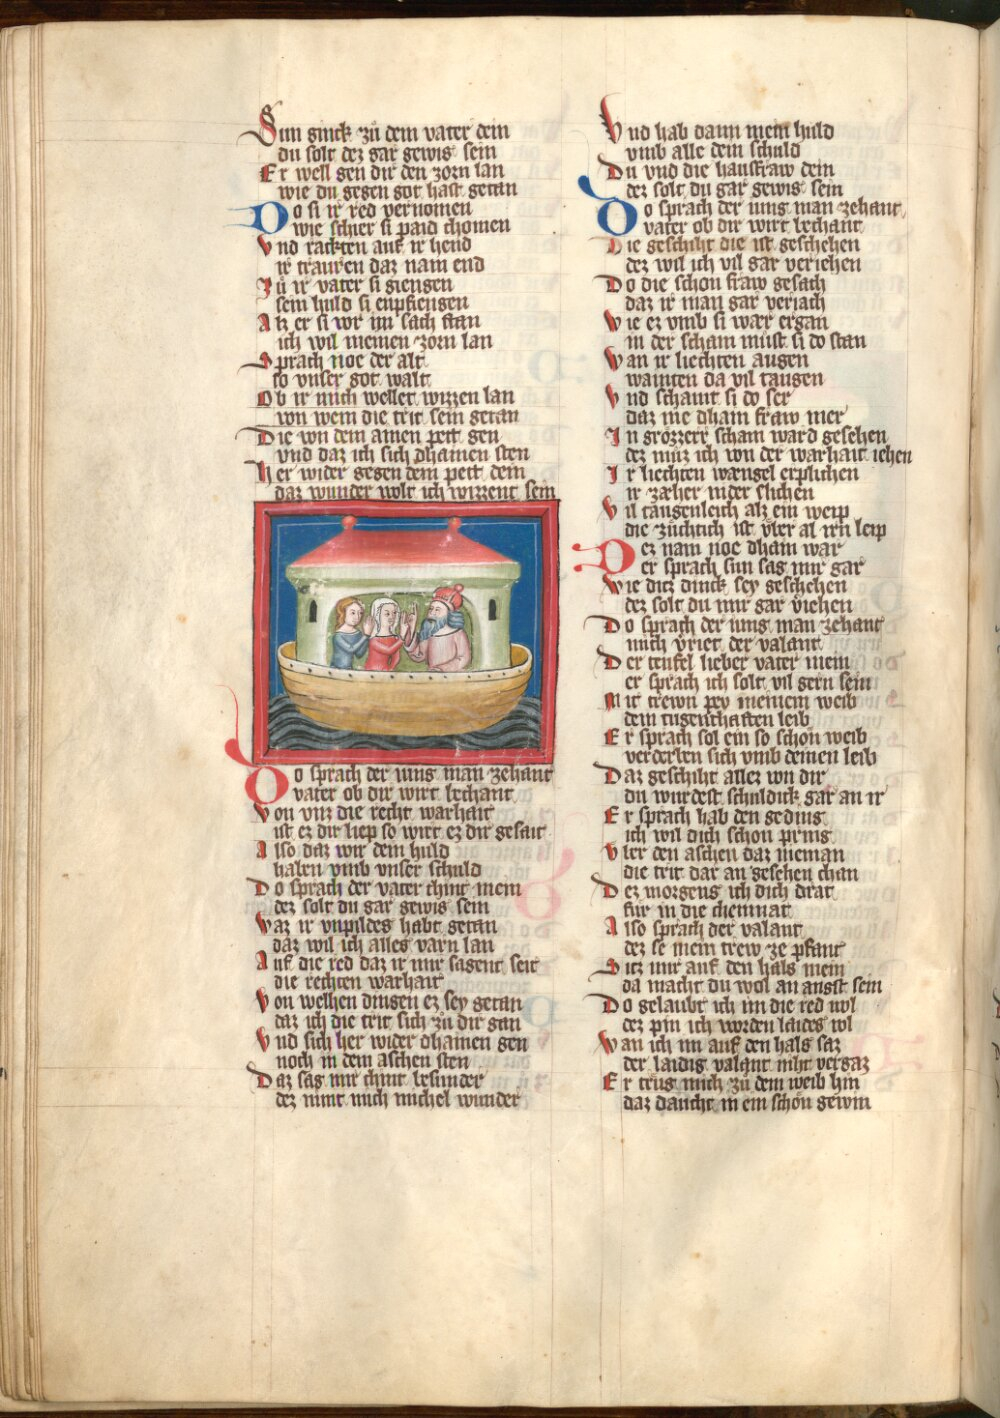 Sun ginck zů dem vater dein
du solt dez gar gewis sein
Er well gen dir den zorn lan
wie du gegen got hast getan
Do si ir red vernomen
wie schier si paid chomen
Vnd rackten auf ir hend
ir trauren daz nam end
Zů ir vater si giengen
sein huld si enpfiengen
Alz er si vor im sach stan
ich wil meinen zorn lan
Sprach noe der alt
so vnser got walt
Ob ir mich wellet wizzen lan
von wem die trit sein getan
Die von dem ainen pett gen
vnd daz ich sich dhainen sten
Her wider gegen dem pett dem
daz wunder wolt ich wizzent sein
Do sprach der iung man zehant
vater ob dir wirt bechant
Von vnz die recht warhait
ist ez dir liep so wirt ez dir gesait
Also daz wir dein huld
haben vmb vnser schuld
Do sprach der vater chint mein
dez solt du gar gewis sein
Waz ir vnpildes habt getan
daz wil ich alles varn lan
Auf die red daz ir mir sagent seit
die rechten warhait
Von welhen dingen ez sey getan
daz ich die trit sich zů dir gan
Vnd sich her wider dhainen gen
noch in dem aschen sten
Daz sag mir chint besunder
dez nimt mich michel wunder
Vnd hab dann mein huld
vmb alle dein schuld
Du vnd die hausfraw dein
dez solt du gar gewis sein
Do sprach der iung man zehant
vater ob dir wirt bechant
Die geschiht die ist geschehen
dez wil ich vil gar veriehen
Do die schon fraw gesach
daz ir man gar veriach
Wie ez vmb si wær ergan
in der scham můst si do stan
Wan ir liechten augen
wainten da vil taugen
Vnd schamt si do ser
daz nie dhain fraw mer
In grözzerr scham ward gesehen
dez můz ich von der warhait iehen
Ir liechten wængel erplichen
ir zæher nider slichen
Vil taugenleich alz ein weip
die zůchtich ist vber al irn leip
Dez nam noe dham war
er sprach sun sag mir gar
Wie ditz dinck sey geschehen
dez solt du mir gar v̈iehen
Do sprach der iung man zehant
mich v̈riet der valant
Der teufel lieber vater mein
er sprach ich solt vil gern sein
Mit trewn pey meinem weib
dem tugenthaften leib
Er sprach sol ein so schön weib
verderben sich vmb deinen leib
Daz geschiht allez von dir
du wurdest schuldick gar an ir
Er sprach hab den geding
ich wil dich schon pring
Vber den aschen daz nieman
die trit dar an gesehen chan
Dez morgens ich dich drat
für in die chemnat
Also sprach der valant
dez se mein trew ze pfant
Sitz mir auf den hals mein
da macht du wol an angst sein
Do gelaubt ich im die red wol
dez pin ich worden laides vol
Wan ich im auf den hals saz
der laidig valant niht vergaz
Er trůg mich zů dem weib hin
daz daucht in ein schön gewin